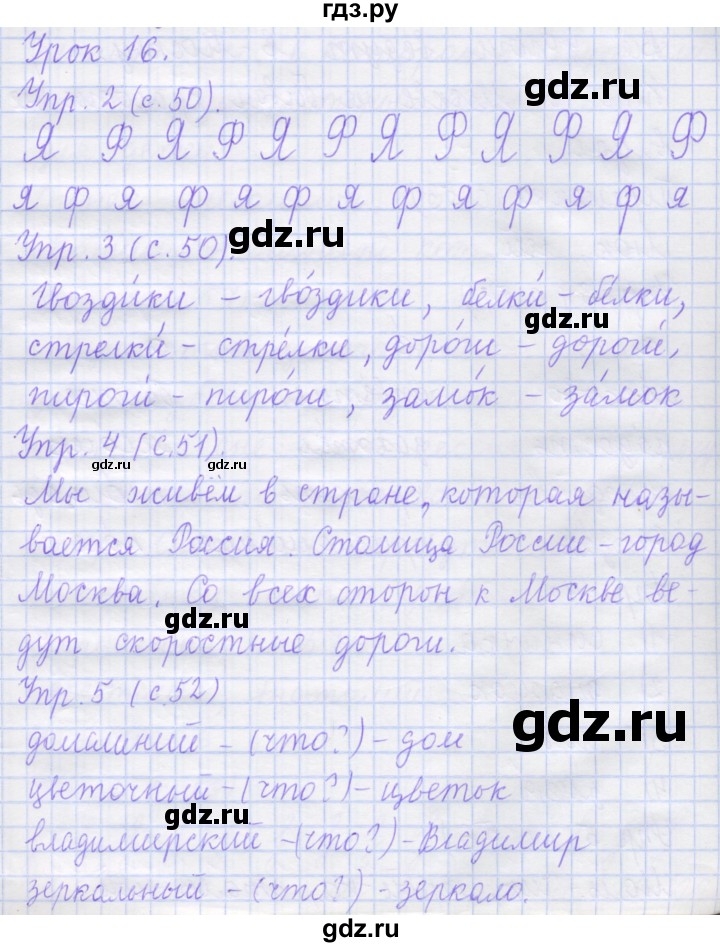 гдз.ру
Урок 16.
gdz.ru
Упр. 2 (с. 50).
Я Ф Я Ф Я Ф Я Ф Я Ф Я Ф
я ф я ф я ф я ф я ф я ф я
Упр. 3 (с. 50).
gdz.ru
Гвозди́ки – гво́здики, белки́ – бе́лки,
gdz.ru
стрелки́ – стре́лки, доро́ги – дороги́,
пироги́ – пиро́ги, замо́к – за́мок
Упр. 4 (с. 51).
gdz.ru gdz.ru
Мы живём в стране, которая назы-
вается Россия. Столица России – город
Москва. Со всех сторон к Москве ве-
gdz.ru
дут скоростные дороги.
Упр. 5 (с. 52)
gdz.ru
домашний – (что?) – дом
цветочный – (что?) – цветок
gdz.ru
владимирский – (что?) – Владимир
зеркальный – (что?) – зеркало.
gdz.ru